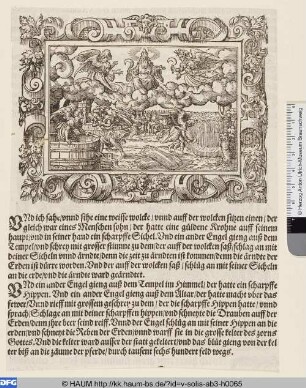 VNd ich sahe/vnnd sihe eine weisse wolcke/vnnd auff der wolcken sitzen einen/der
gleich war eines Menschen sohn/der hatte eine güldene Krohne auff seinem
haupt/vnd in seiner hand ein scharpffe Sichel. Vnd ein ander Engel gieng auß dem
Tempel/vnd schrey mit grosser stimme zu dem/der auff der wolcken saß/schlag an mit
deiner Sicheln vnnd ärndte/denn die zeit zu ärndten ist kommen/denn die ärndte der
Erden ist dürre worden. Vnd der auff der wolcken saß/schlug an mit seiner Sicheln
an die erde/vnd die ärndte ward geärndtet.
VNd ein ander Engel gieng auß dem Tempel im Himmel/der hatte ein scharpffe
Hippen. Vnd ein ander Engel gieng auß dem Altar/der hatte macht vber das
fewer/Vnnd rieff mit grossem geschrey zu dem/der die scharpffe Hippen hatte/vnnd
sprach/Schlage an mit deiner scharpffen hippen/vnd schneyte die Drauben auff der
Erden/denn ihre beer seind reiff. Vnnd der Engel schlug an mit seiner Hippen an die
erden/vnd schneyt die Reben der Erden/vnnd warff sie in die grosse kelter des zorns
Gottes. Vnd die kelter ward ausser der statt gekeltert/vnd das blůt gieng von der kel
ter biß an die zäume der pferde/durch tausent sechs hundert feld wegs.
© Herzog Anton Ulrich-Museum Braunschweig
DFG
© HAUM http://kk.haum-bs.de/?id=v-solis-ab3-h0065